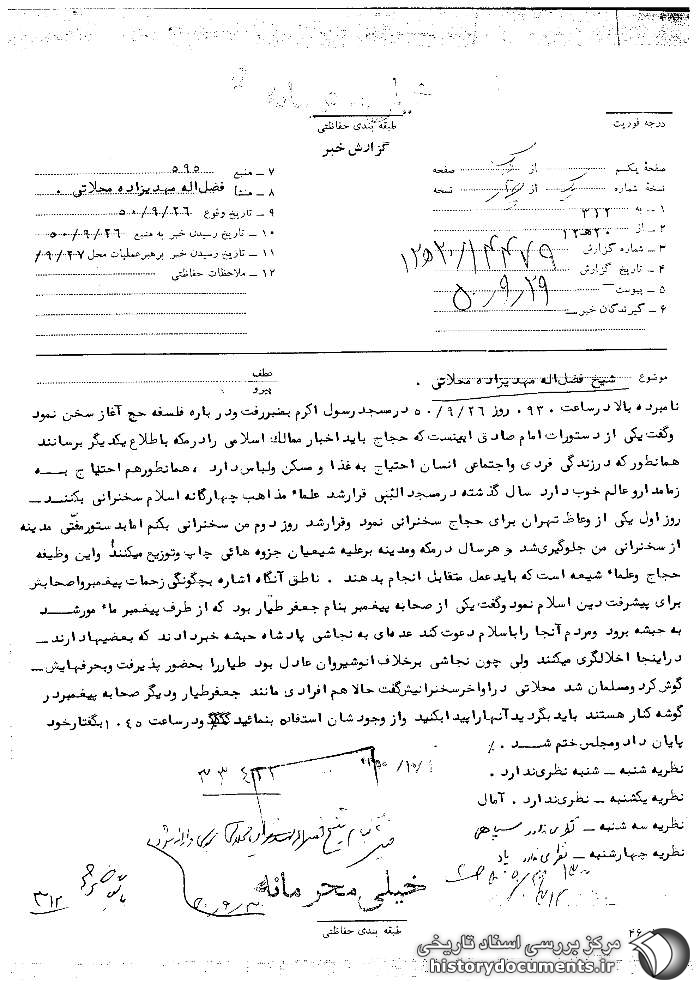 درجه فوریت
طبقه بندی حفاظتی
گزارش خبر
صفحهٔ یکم از یک صفحه
نسخهٔ شماره یک از نسخه
۱ ــ به ۳۱۲
۲ ــ از ۲۰ هـ ۱۲
۳ ــ شماره گزارش ۱۲۵۲۰/۱۴۴۷۹
۴ ــ تاریخ گزارش ۵۰/۹/۲۹
۵ ــ پیوست
۶ ــ گیرندگان خبر
۷ ــ منبع ۵۹۵
۸ ــ منشأ فضل‌اله مهدیزاده محلاتی .
۹ ــ تاریخ وقوع ۵۰/۹/۲۶
۱۰ ــ تاریخ رسیدن خبر به منبع ۵۰/۹/۲۶
۱۱ ــ تاریخ رسیدن خبر برهبرعملیات محل ۹/۲۷/
۱۲ ــ ملاحظات حفاظتی
موضوع شیخ فضل‌اله مهدیزاده محلاتی .
عطف
پیرو
نامبرده بالا درساعت ۰۹۳۰ روز ۵۰/۹/۲۶ درمسجد رسول اکرم بمنبررفت ودر باره فلسفه حج آغاز سخن نمود
وگفت یکی از دستورات امام صادق اینست که حجاج باید اخبار ممالك اسلامی رادرمکه باطلاع یکدیگر برسانند
همانطور که درزندگی فردی واجتماعی انسان احتیاج به غذا و مسکن ولباس دارد ، همانطورهم احتیاج بــه
زمامدارو عالم خوب دارد سال گذشته درمسجد النبی قرارشد علماء مذاهب چهارگانه اسلام سخنرانی بکننــد
روز اول یکی از وعاظ تهران برای حجاج سخنرانی نمود وقرارشد روز دوم من سخنرانی بکنم امابدستورمفتی مدینه
از سخنرانی من جلوگیری شد و هرسال درمکه ومدینه برعلیه شیعیان جزوه هائی چاپ وتوزیع میکنند واین وظیفه
حجاج وعلماء شیعه است که باید عمل متقابل انجام بدهند . ناطق آنگاه اشاره بچگونگی زحمات پیغمبرواصحابش
برای پیشرفت دین اسلام نمود وگفت یکی از صحابه پیغمبر بنام جعفر طیار بود که از طرف پیغمبر مأمورشــد
به حبشه برود ومردم آنجا راباسلام دعوت کند عده‌ای به نجاشی پادشاه حبشه خبردادند که بعضیهادارند
دراینجا اخلالگری میکنند ولی چون نجاشی برخلاف انوشیروان عادل بود طیاررا بحضور پذیرفت وبحرفهایش
گوش کرد ومسلمان شد محلاتی درواخرسخنرانیش گفت حالا هم افرادی مانند جعفرطیار ودیگر صحابه پیغمبردر
گوشه کنار هستند باید بگردید آنهاراپیدابکنید واز وجودشان استفاده بنمائید ودرساعت ۱۰۴۵ بگفتارخود
پایان داد ومجلس ختم شــد . ٪
نظریه شنبه ــ شنبه نظری ندارد .
نظریه یکشنبه ــ نظری ندارد . آمال
نظریه سه شنبه ــ نظری ندارد سپاهی
نظریه چهارشنبه ــ نظری ندارد
۵۰/۱۰/۱
۳۳۴۲۲
خیلی محرمانه
۳۱۲
طبقه بندی حفاظتی
۴۶
مرکز بررسی اسناد تاریخی
historydocuments.ir